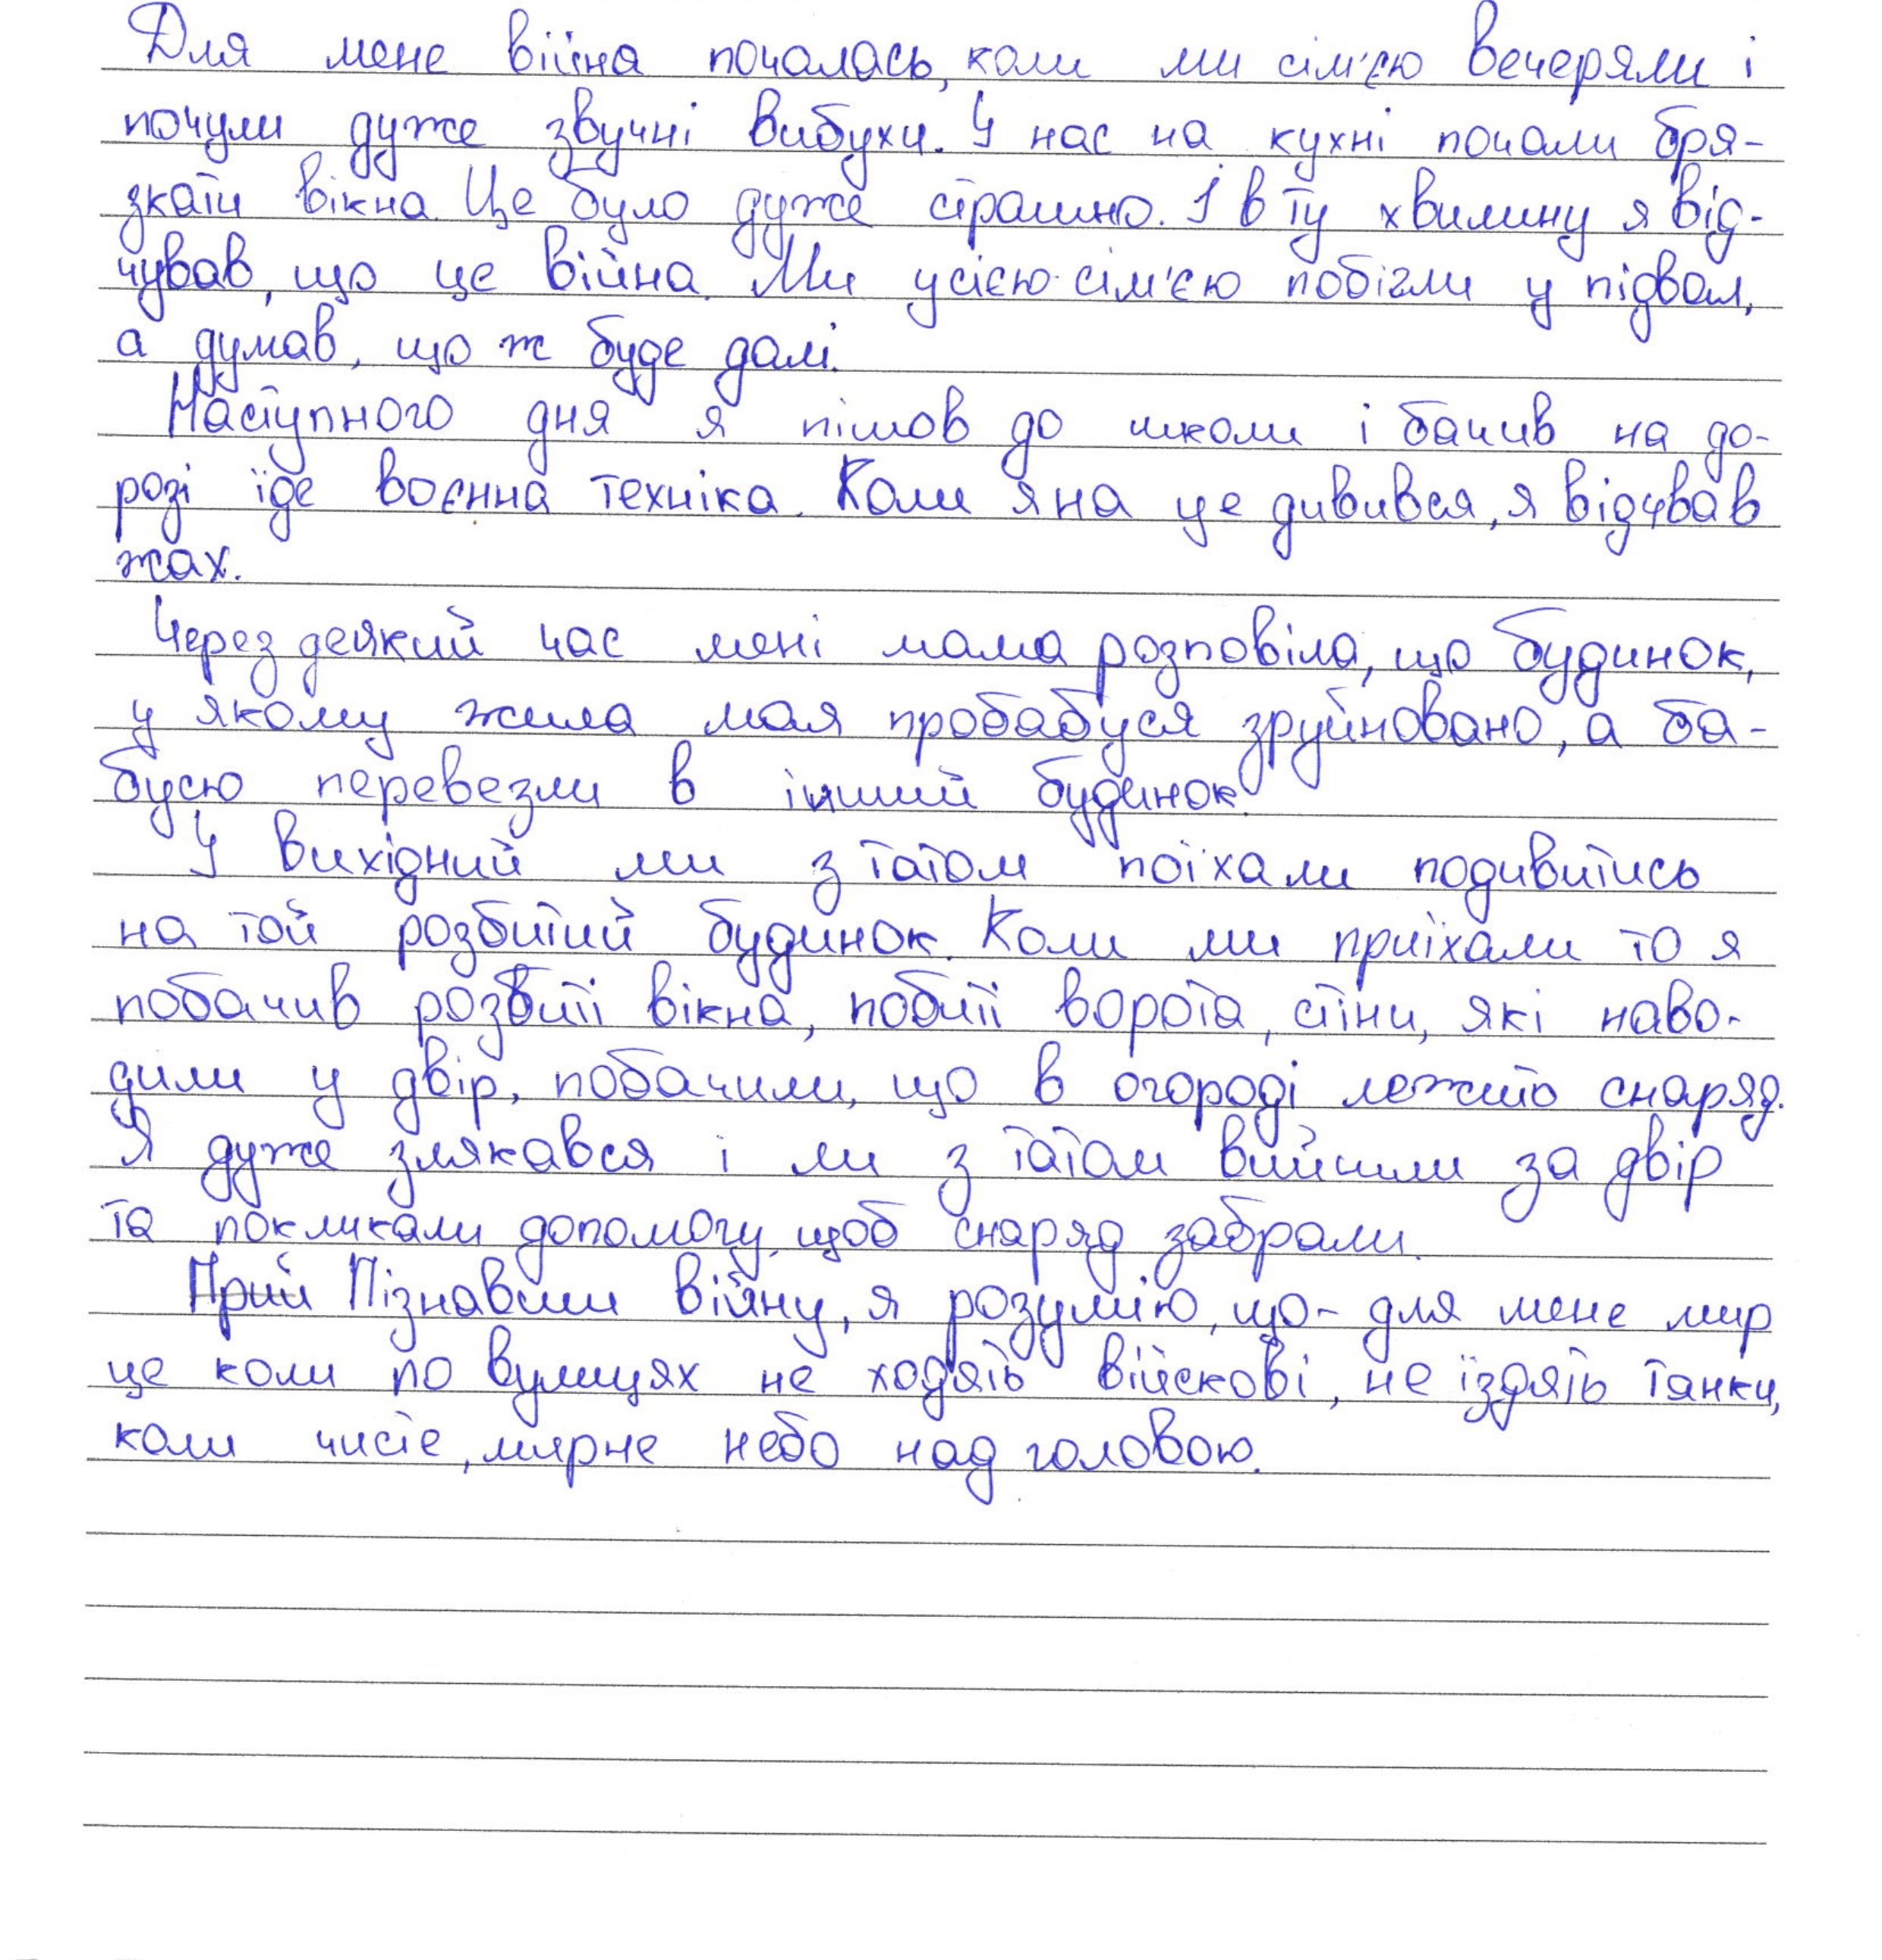 Для мене війна почалась, коли ми сім'єю вечеряли і
почули дуже звучні вибухи. У нас на кухні почали бря-
зкати вікна. Це було дуже страшно. І в ту хвилину я від-
чував, що це війна. Ми усією сім'єю побігли у підвал,
а думав, що ж буде далі.
Наступного дня я пішов до школи і бачив на до-
розі їде воєнна техніка. Коли я на це дивився, я відчував
жах.
Через деякий час мені мама розповіла, що будинок,
у якому жила моя пробабуся зруйновано, а ба-
бусю перевезли в інший будинок.
У вихідний ми з татом поїхали подивитись
на той розбитий будинок. Коли ми приїхали то я
побачив розбиті вікна, побиті ворота, стіни, які наво-
дили у двір, побачили, що в огороді лежить снаряд.
Я дуже злякався і ми з татом вийшли за двір
та покликали допомогу, щоб снаряд забрали.
Прий Пізнавши війну, я розумію, що - для мене мир
це коли по вулицях не ходять війскові, не їздять танки,
коли чисте, мирне небо над головою.